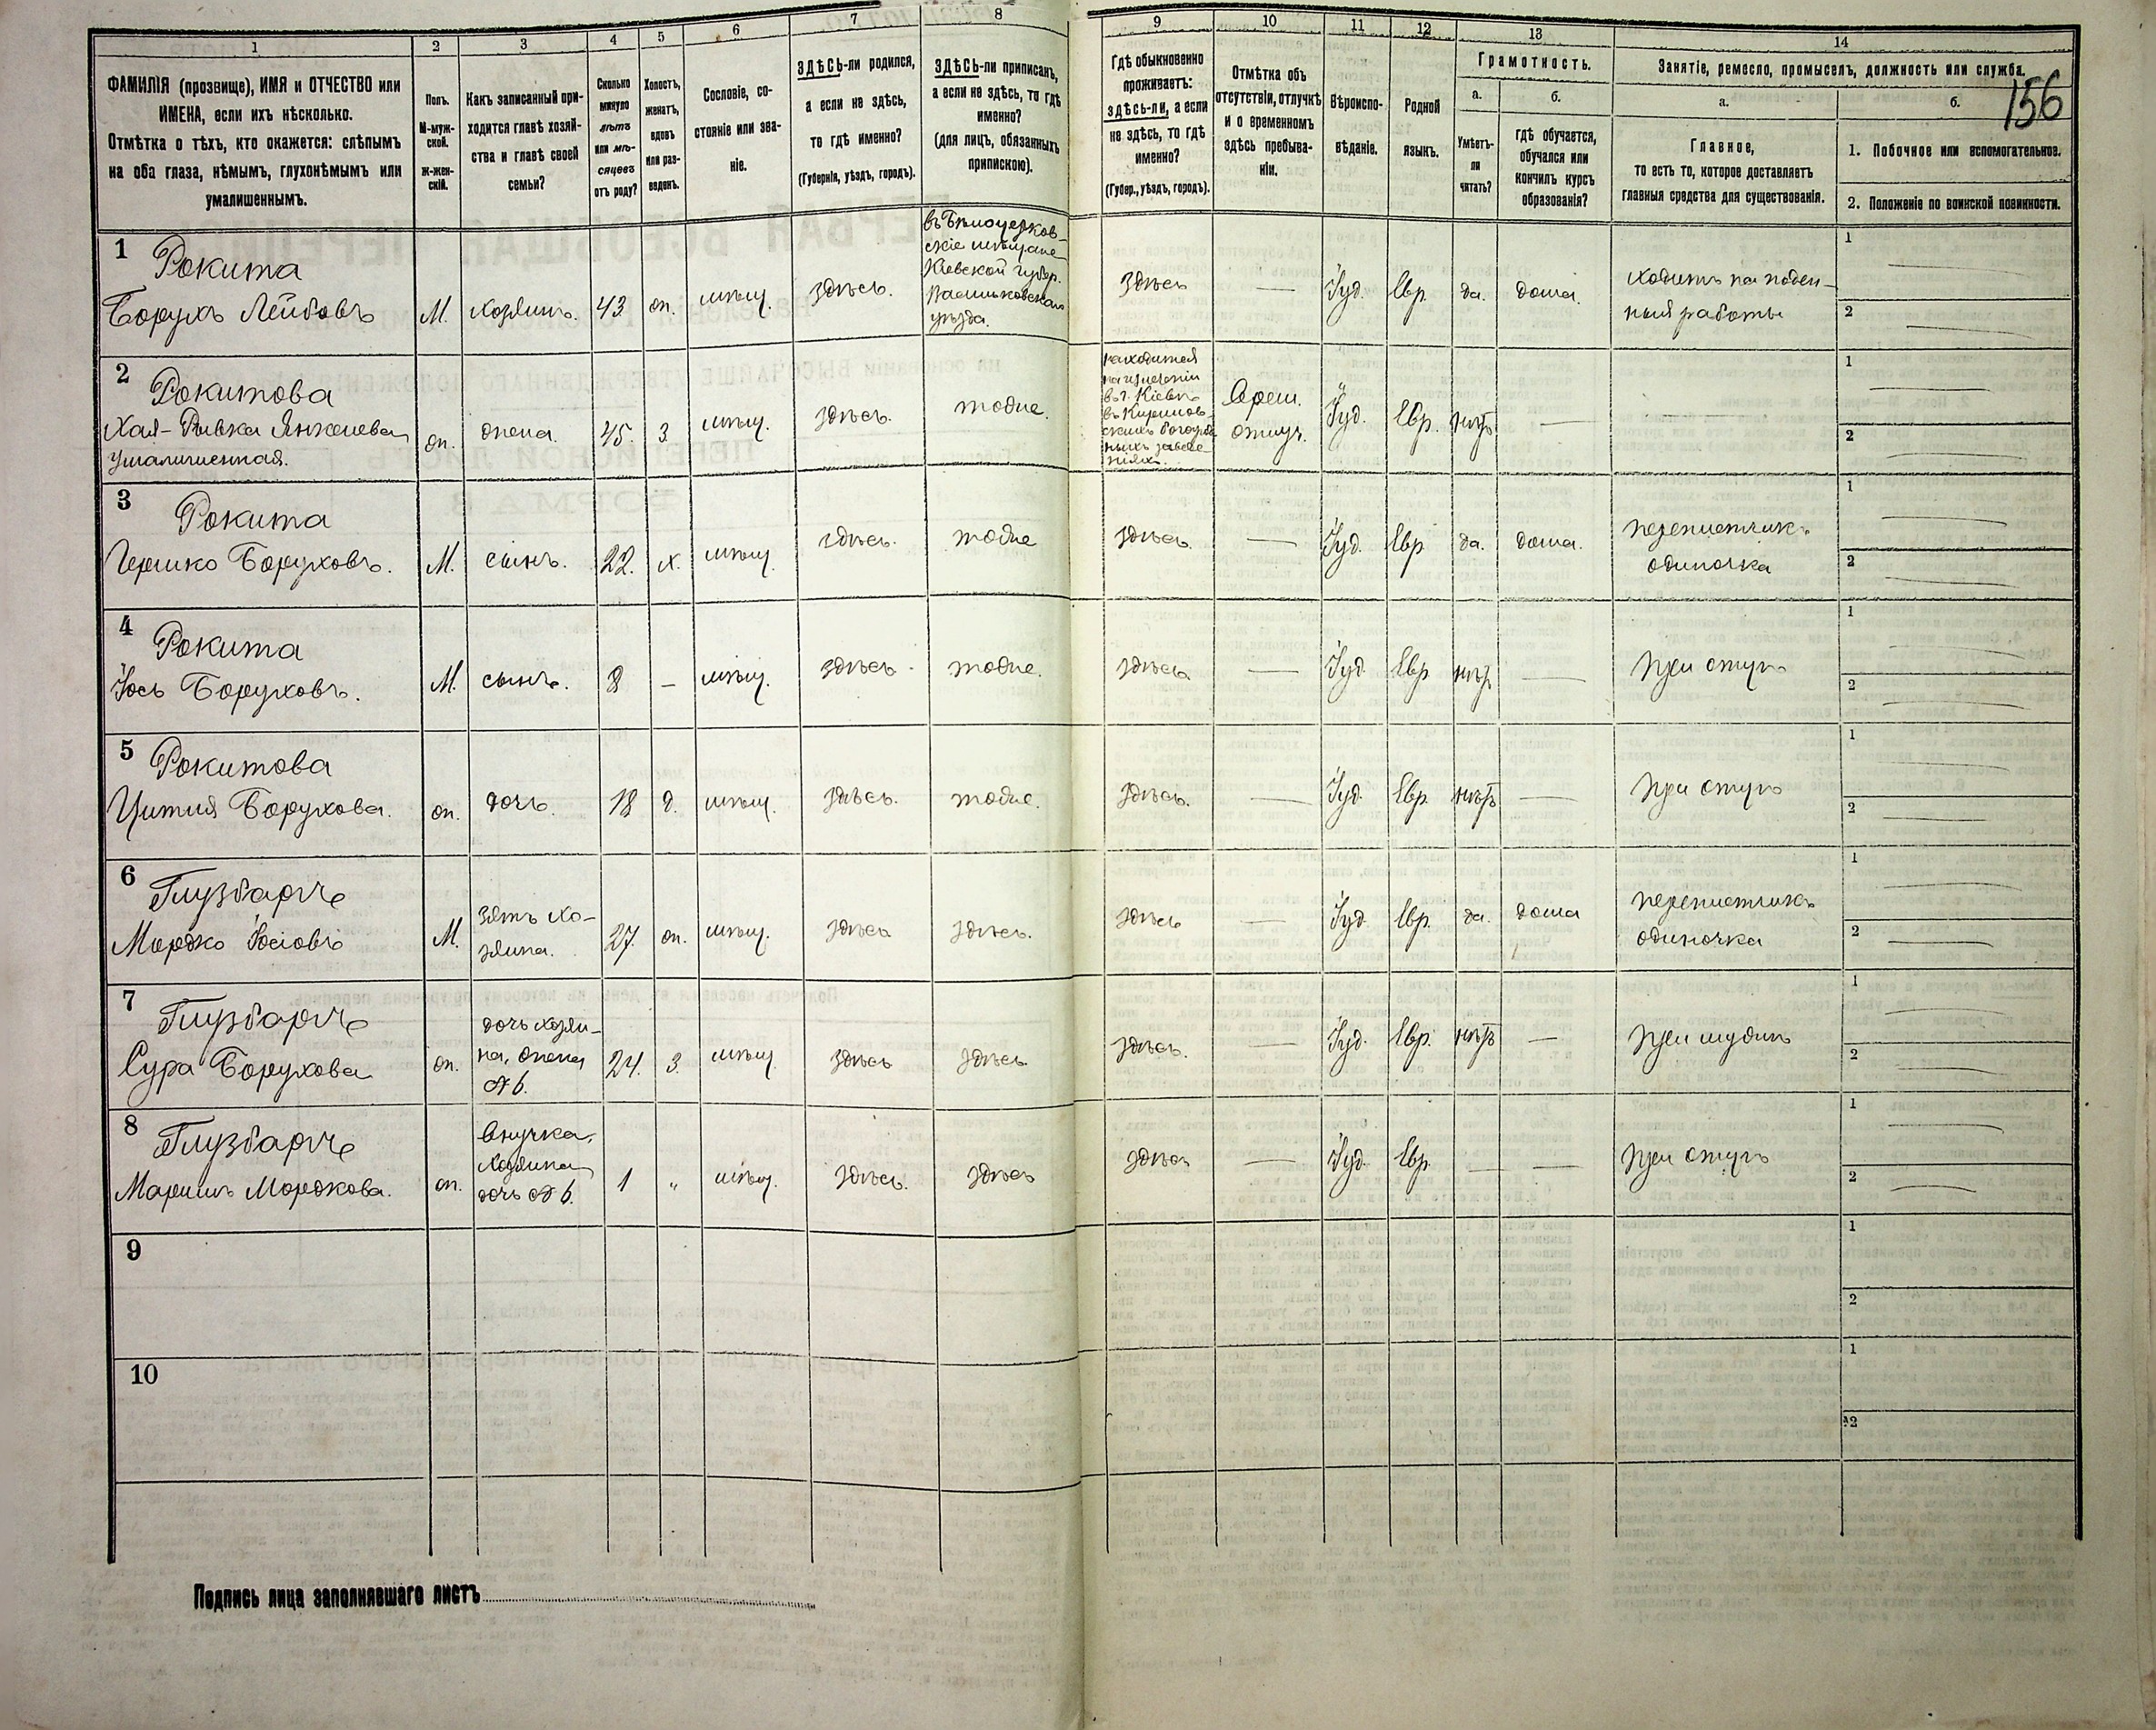 1 2 3 4 5 6 7 8 9 10 11 12 13 14
ФАМИЛІЯ (прозвище), ИМЯ и ОТЧЕСТВО или
ИМЕНА, если ихъ нѣсколько.
Отмѣтка о тѣхъ, кто окажется: слѣпымъ
на оба глаза, нѣмымъ, глухонѣмымъ или
умалишеннымъ.
Полъ.
М-муж-
ской.
Ж-жен-
скій.
Какъ записанный при-
ходится главѣ хозяй-
ства и главѣ своей
семьи?
Сколько
минуло
лѣтъ
или мѣ-
сяцевъ
отъ роду?
Холостъ,
женатъ,
вдовъ
или раз-
веденъ.
Сословіе, со-
стояніе или зва-
ніе.
ЗДѢСЬ-ли родился,
а если не здѣсь,
то гдѣ именно?
(Губернія, уѣздъ, городъ).
ЗДѢСЬ-ли приписанъ,
а если не здѣсь, то гдѣ
именно?
(для лицъ, обязанныхъ
припискою).
Гдѣ обыкновенно
проживаетъ:
здѣсь-ли, а если
не здѣсь, то гдѣ
именно?
(Губер., уѣздъ, городъ).
Отмѣтка объ
отсутствіи, отлучкѣ
и о временномъ
здѣсь пребыва-
ніи.
Вѣроиспо-
вѣданіе.
Родной
языкъ.
Грамотность.
а.
Умѣетъ-
ли
читать?
б.
гдѣ обучается,
обучался или
кончилъ курсъ
образованія?
Занятіе, ремесло, промыселъ, должность или служба.
156
а.
Главное,
то есть то, которое доставляетъ
главныя средства для существованія.
б.
1. Побочное или вспомогательное.
2. Положеніе по воинской повинности.
1
Рокита
Борухъ Лейбовъ
М.
хозяинъ.
43
оп.
мѣщ.
здѣсь.
въ Бѣлоцерков-
скіе мѣщане
Кіевской губер.
Васильковскаго
уѣзда.
здѣсь
—
Іуд.
Евр.
да.
дома.
ходитъ на поден-
ныя работы
1
2
2
Рокитова
Хая-Ривка Янкелева
умалишенная.
оп.
опена.
45.
3
мѣщ.
здѣсь.
тоже.
находится
въ г. Кіевѣ
въ Кирилов-
скихъ богоугод
ныхъ заведе-
ніяхъ.
отлуч.
Іуд.
Евр.
нѣтъ
—
1
2
3
Рокита
Гершко Боруховъ.
М.
сынъ.
22.
х.
мѣщ.
здѣсь.
тоже
здѣсь.
—
Іуд.
Евр
да.
дома.
переплетчикъ
одиночка
1
2
4
Рокита
Іось Боруховъ.
М.
сынъ.
8
—
мѣщ.
здѣсь.
тоже.
здѣсь
—
Іуд
Евр
нѣтъ
—
при отцѣ
1
2
5
Рокитова
Борухова.
оп.
дочь.
18
д.
мѣщ.
здѣсь.
тоже.
здѣсь.
—
Іуд.
Евр
нѣтъ
—
при отцѣ
1
2
6
Глузбаргъ
Мордко Іосіовъ
М.
зять хо-
зяина.
27.
оп.
мѣщ.
здѣсь
здѣсь.
здѣсь
—
Іуд
Евр.
да.
дома
переплетчикъ
одиночка
1
2
7
Глузбаргъ
Сура Борухова
оп.
дочь хозяи-
на, опена
№ 6.
24.
3.
мѣщ.
здѣсь
здѣсь
здѣсь.
—
Іуд.
Евр.
нѣтъ
—
при мужѣ
1
2
8
Глузбаргъ
Мордкова.
оп.
внучка
хозяина
дочь № 6.
1
"
мѣщ.
здѣсь.
здѣсь
здѣсь
—
Іуд.
Евр.
—
—
при отцѣ
1
2
9
1
2
10
1
2
Подпись лица заполнявшаго листъ